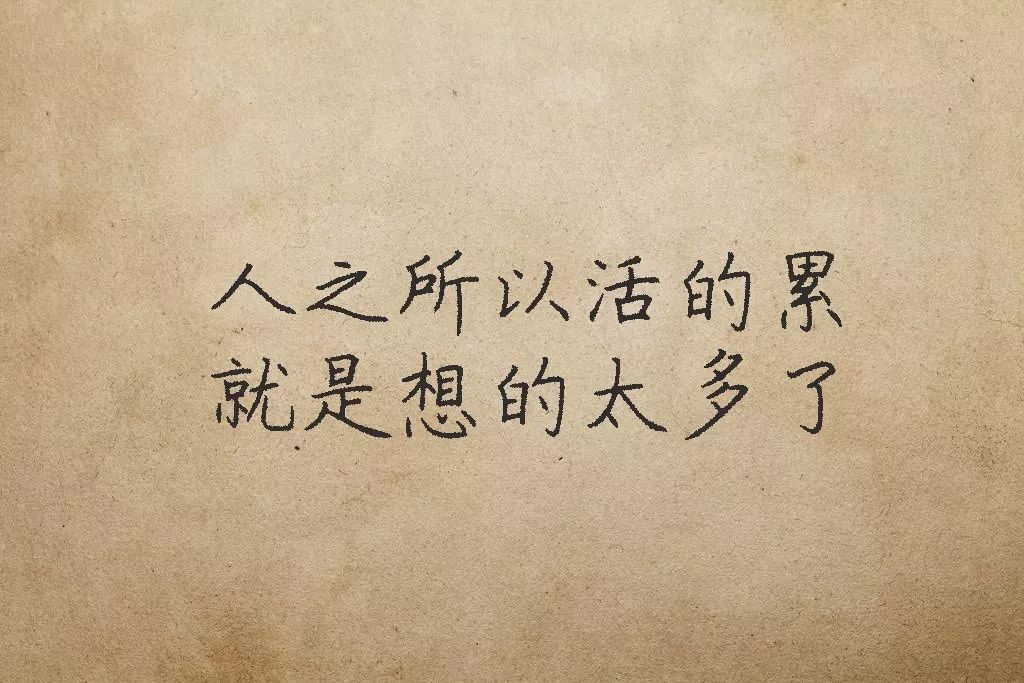 人之所以活的累
就是想的太多了